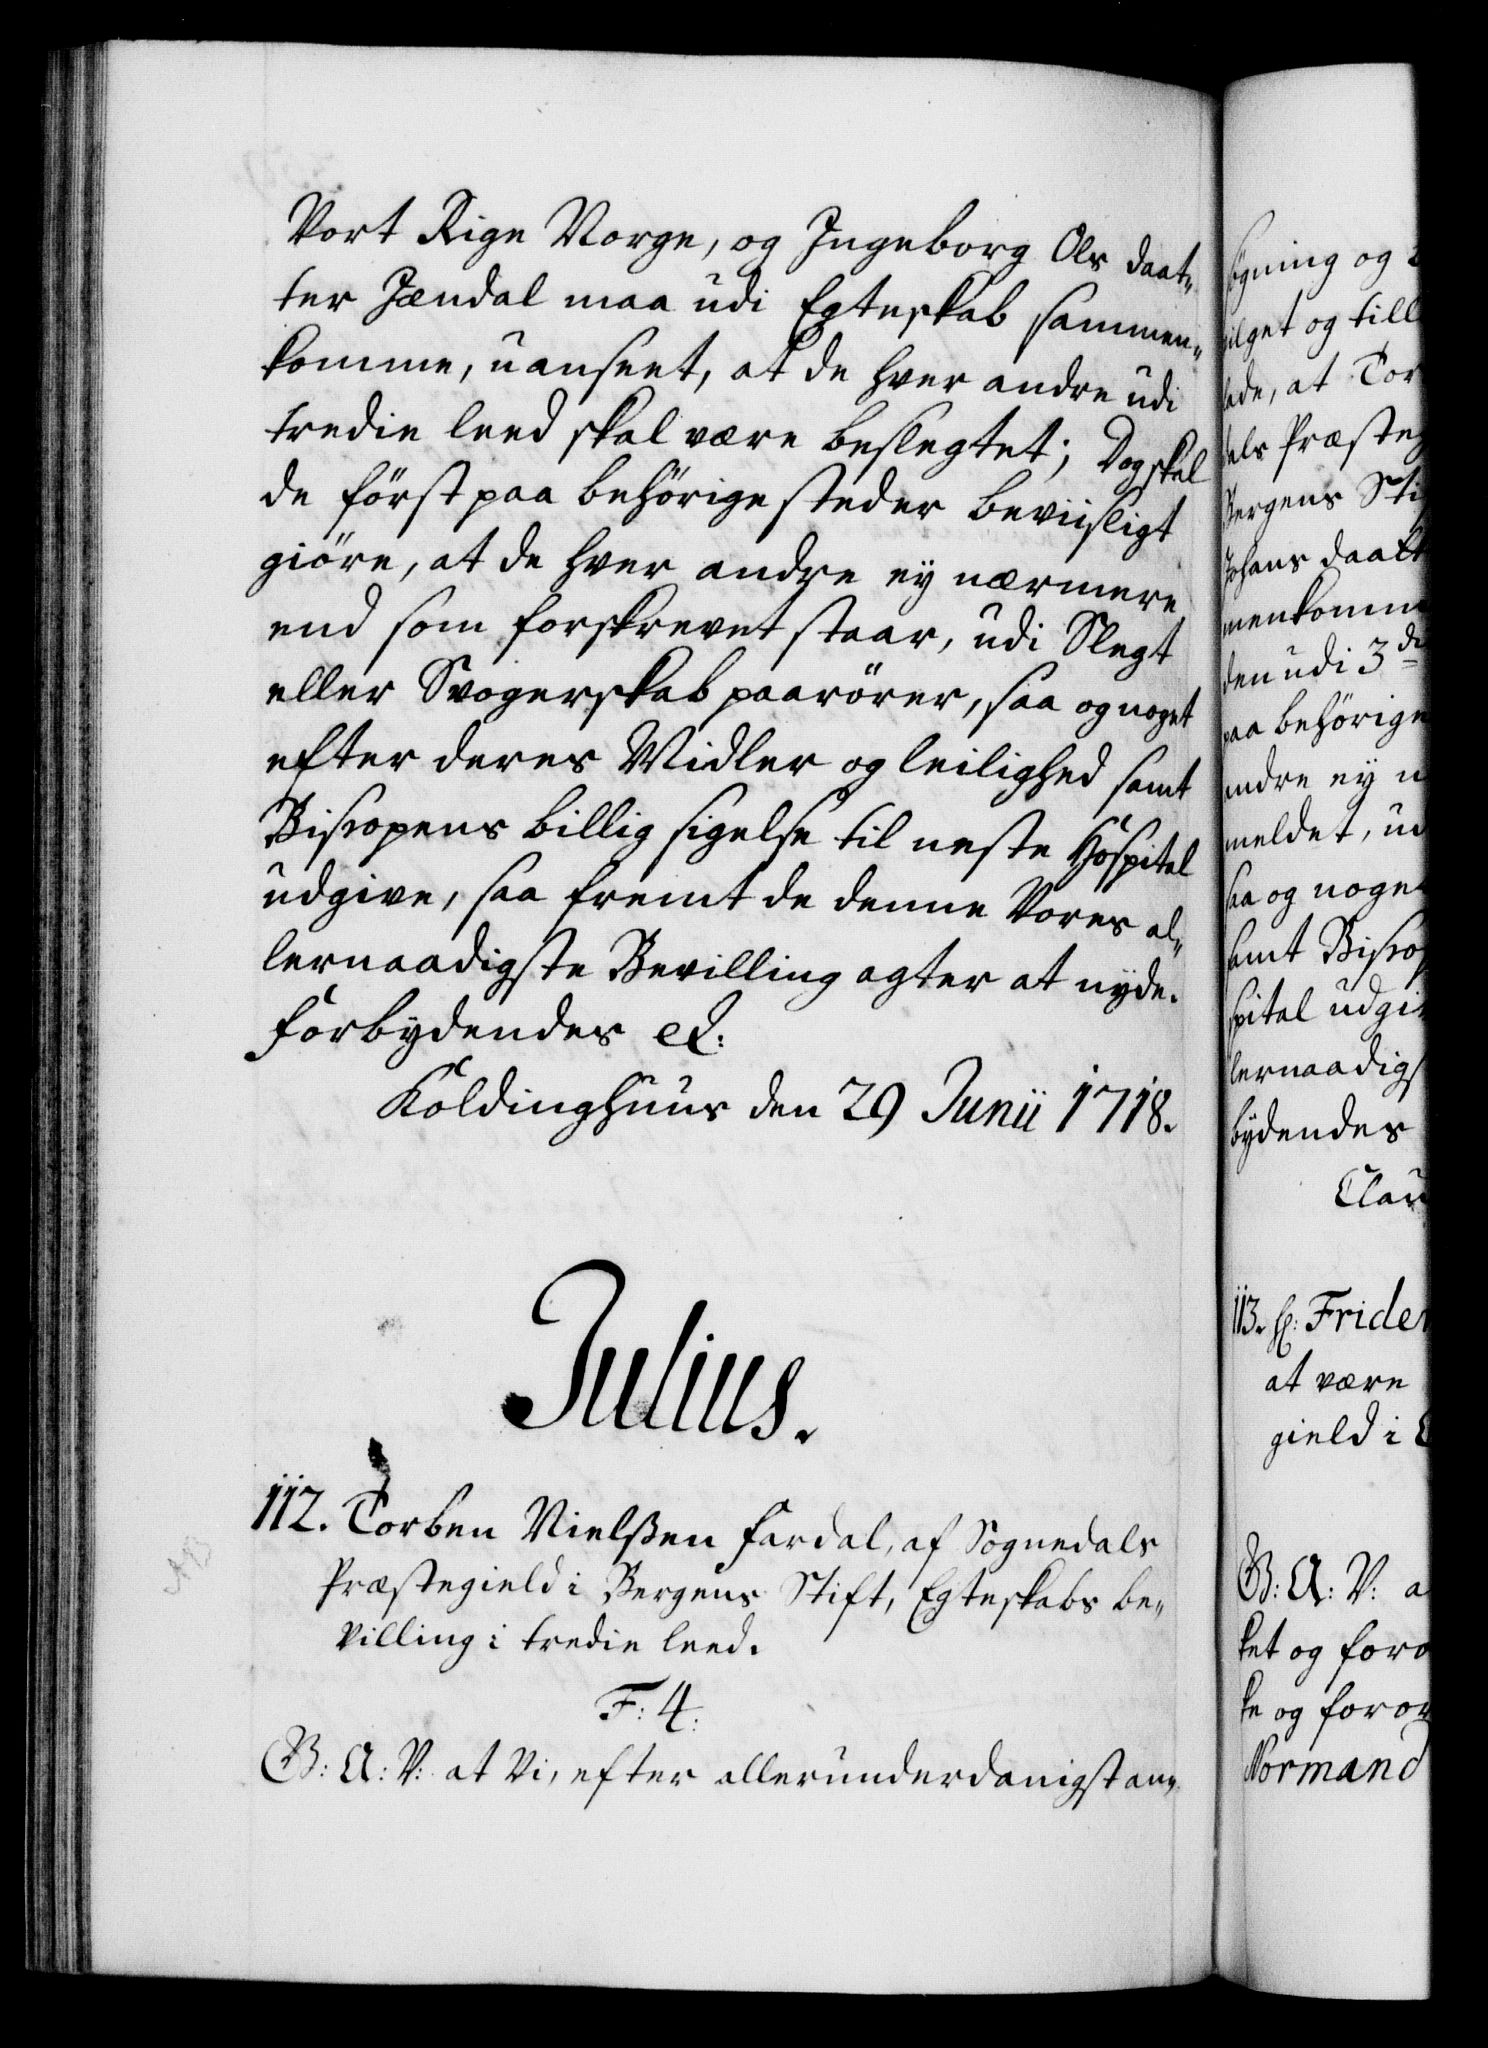 Vort Rige Norge, og Ingeborg Ols daat„
ter Jændal maa udi Egteskab sammen„
komme, uanseet, at de hver andre udi
tredie leed skal være beslegtet; Dog skal
de först paa behörige steder beviisligt
giöre, at de hver andre ey nærmere
end som forskrevet staar, udi Slegt
eller Svogerskab paarörer, saa og noget
efter deres Midler og leilighed samt
Biscopens billig sigelse til neste Hospital
udgive, saa fremt de denne Vores al„
lernaadigste Bevilling agter at nyde.
forbydendes etc:
Koldinghuus den 29 Junii 1718.
Julius.
112. Torben Nielßen fardal, af Sognedals
Præstegield i Bergens Stift, Egteskabs be„
villing i tredie leed.
F: 4:
G: A: V: at Vi, efter allerunderdanigst an„
øgning og
ilget og till
lade, at Tor
dals Præsteg
Bergens Sti
Johans daatt
menkomm
den udi 3de
paa behörige
andre ey n
meldet, ud
saa og noget
samt Biscop
spital udgi
lernaadigs
bydendes
Clau
113. H: Frider
at være
gield i
G: A: V: a
ket og foro
ke og foror
Normand